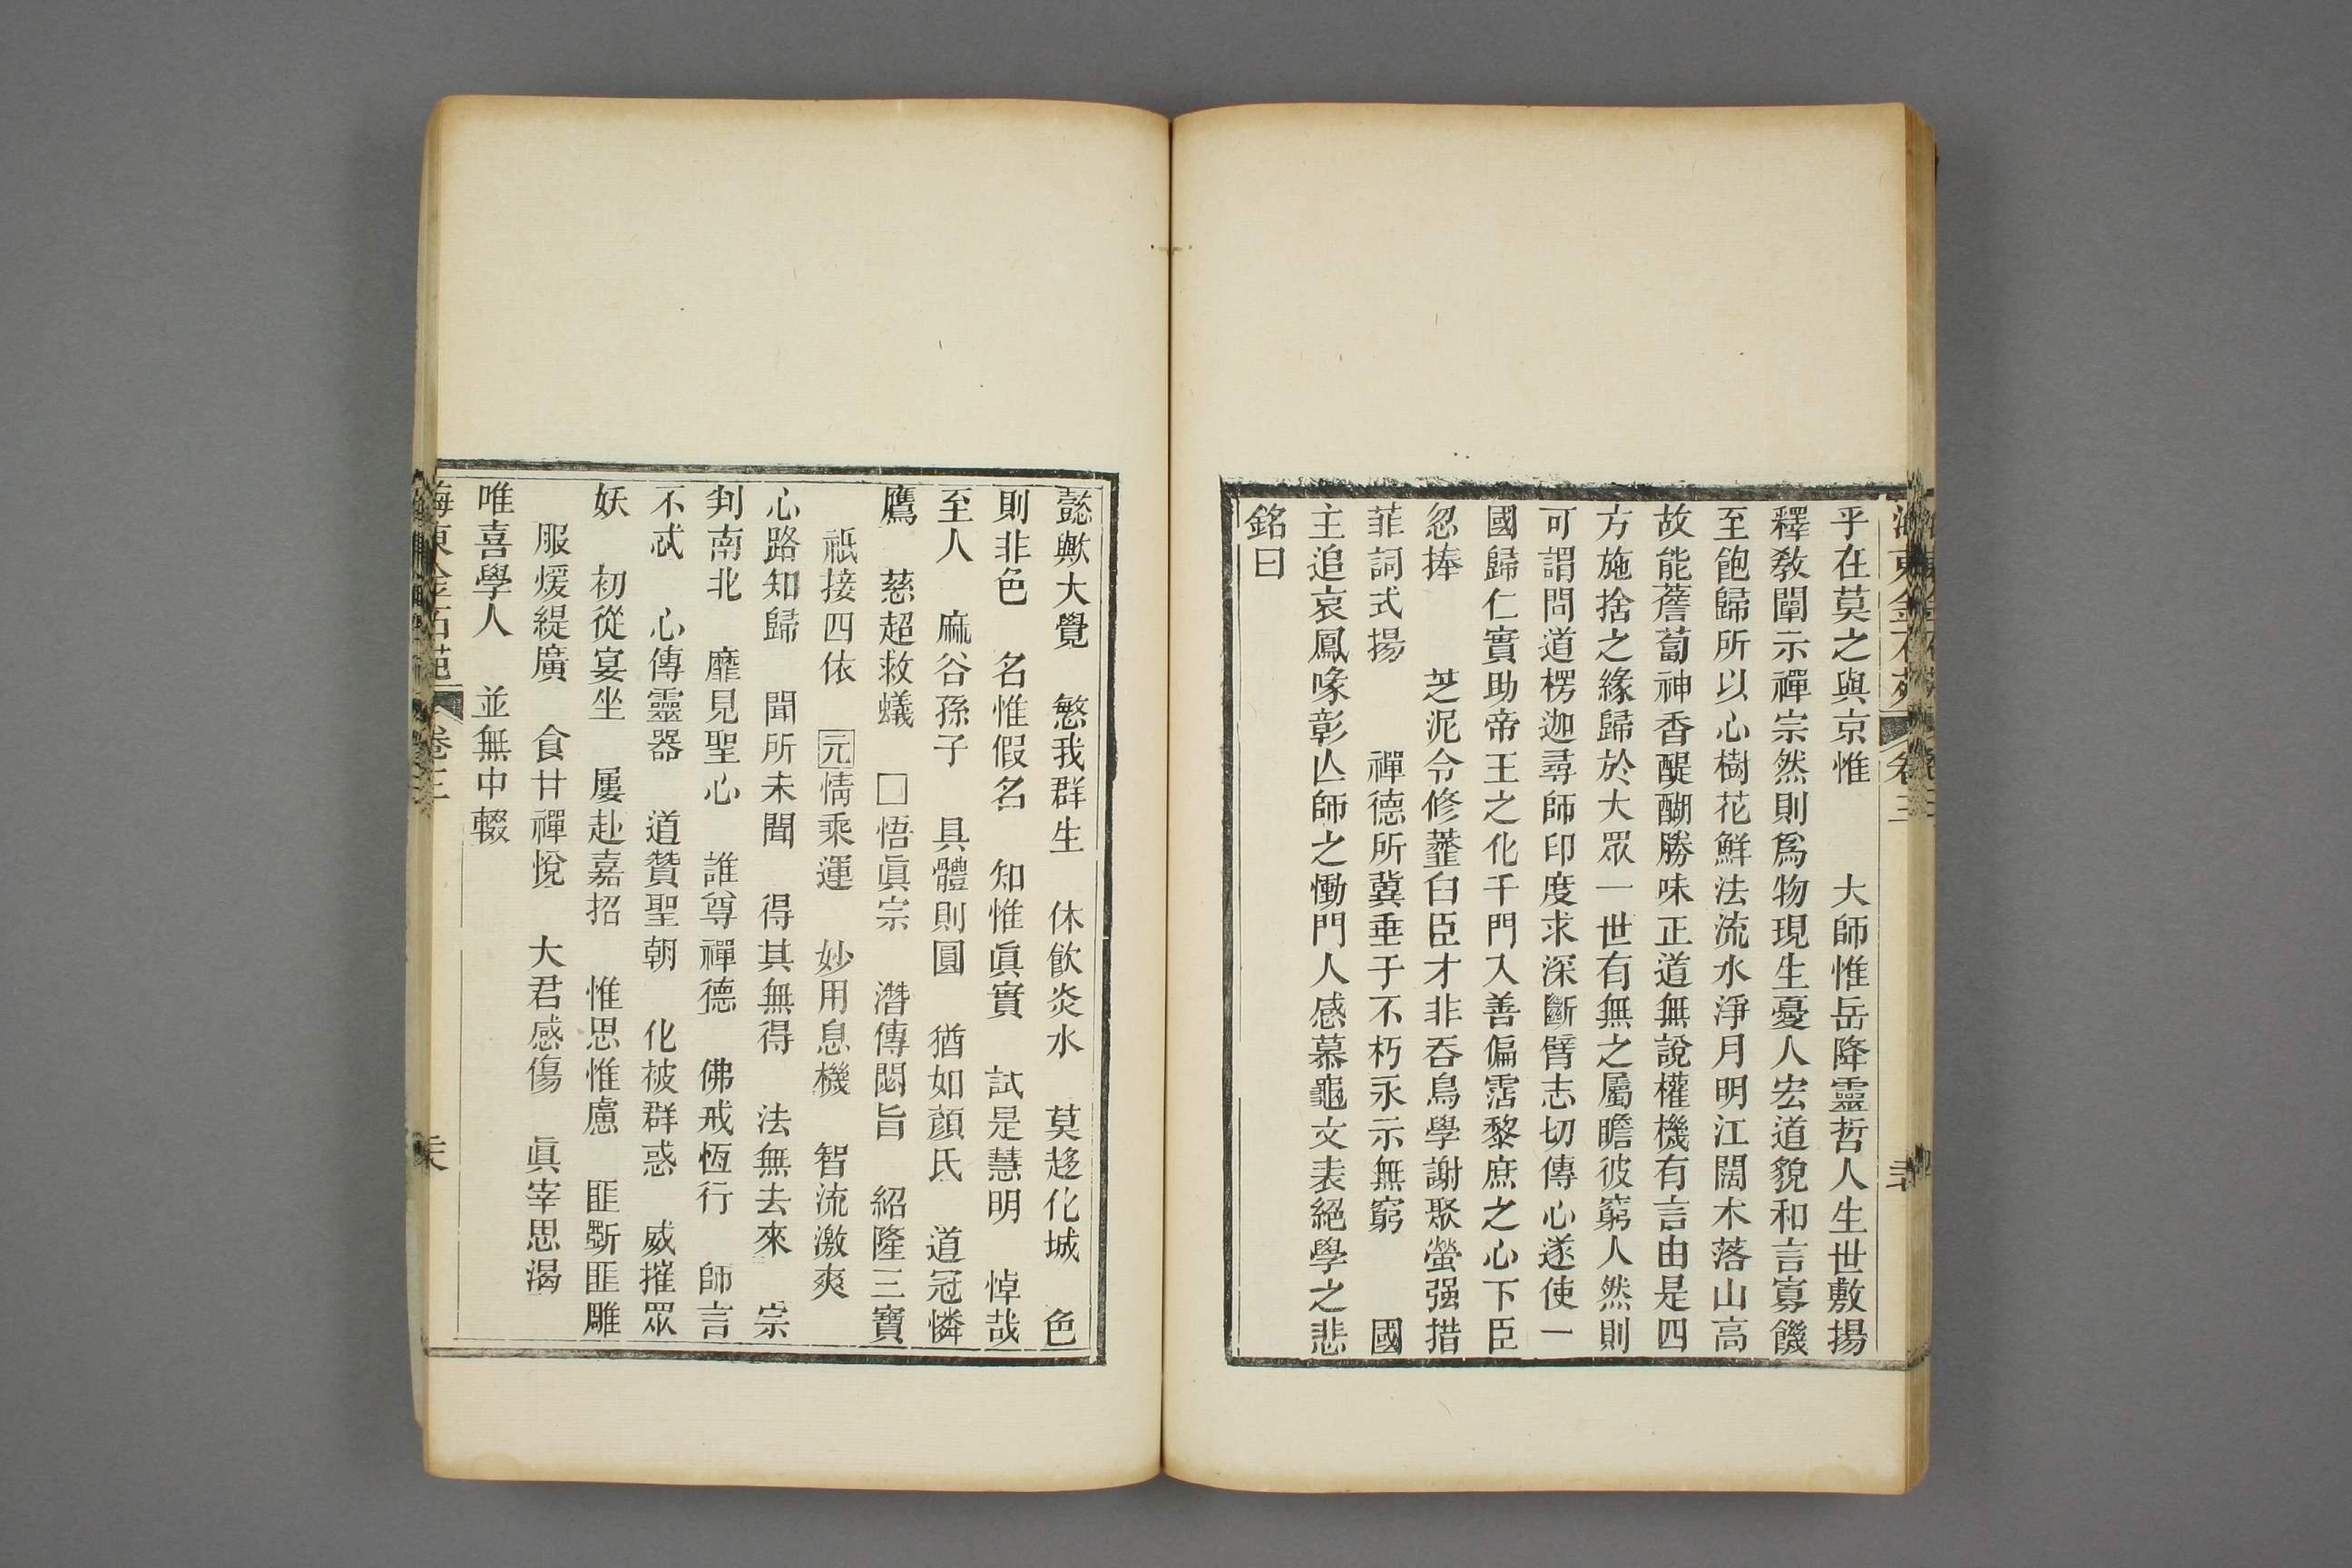 乎在莫之與京惟　　大師惟岳降靈哲人生世敷揚
釋敎闡示禪宗然則爲物現生憂人宏道貌和言寡饑
至飽歸所以心樹花鮮法流水淨月明江闊木落山高
故能薝蔔神香醍醐勝味正道無說權機有言由是四
方施捨之緣歸於大眾一世有無之屬瞻彼窮人然則
可謂問道楞迦尋師印度求深斷臂志切傳心遂使一
國歸仁實助帝王之化千門入善偏霑黎庶之心下臣
忽捧　　芝泥令修虀臼臣才非吞鳥學謝聚螢强措
菲詞式揚　　禪德所冀垂于不朽永示無窮　　國
主追哀鳳喙彰亾師之慟門人感慕龜文表絕學之悲
銘曰
懿歟大覺　慜我群生　休飮炎水　莫趍化城　色
則非色　名惟假名　知惟眞實　試是慧明　悼哉
至人　麻谷孫子　具體則圓　猶如顔氏　道冠憐
鷹　慈超救蟻　□悟眞宗　潛傳閟旨　紹隆三寶
　祇接四依　元情乘運　妙用息機　智流激爽
心路知歸　聞所未聞　得其無得　法無去來　宗
判南北　靡見聖心　誰尊禪德　佛戒恆行　師言
不忒　心傳靈器　道贊聖朝　化被群惑　威摧眾
妖　初從宴坐　屢赴嘉招　惟思惟慮　匪斲匪雕
　服煖緹廣　食甘禪悅　大君感傷　眞宰思渴
唯喜學人　並無中輟
海東金石苑　卷三